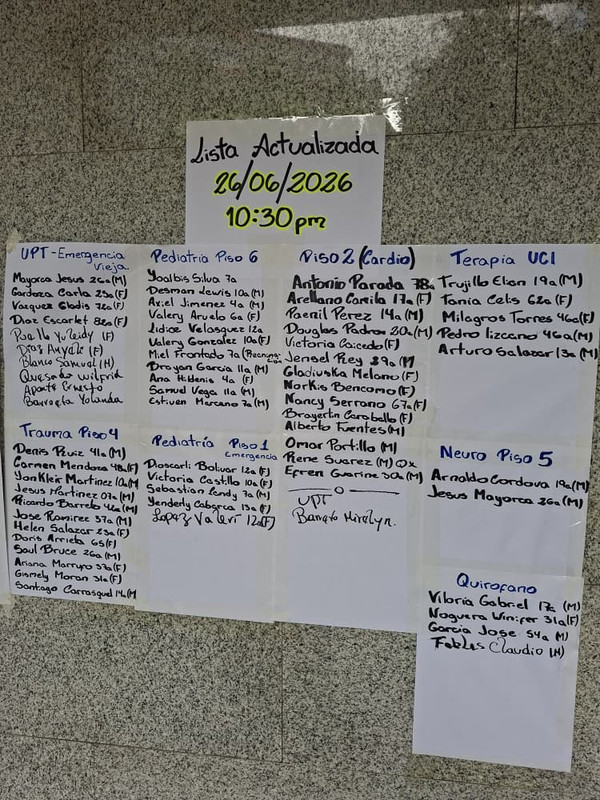 Lista Actualizada
26/06/2026
10:30 pm
UPT-Emergencia
Vieja.
Mayorca Jesus 26a(M)
Cardoza Carla 23a(F)
Vazquez Gladis 72a(F)
Diaz Escarlet 82a(F)
Yuleidy (F)
Diaz (F)
Blanco Samuel (H)
Quesedo wilfrid
Aponte Ernesto
Barrueta Yolanda
Pediatria Piso 6
Yoalbis Silva 7a
Desman Lewis 10a(M)
Axiel Jimenez 4a (M)
Valery Arvelo 6a (F)
Lidice Velasquez 12a
Valery Gonzalez 10a(F)
Miel Frontado 7a
Drayan Garcia 11a(M)
Ana Hidenis 4a (F)
Samuel Vega 11a (M)
Estiven Marcano 7a(M)
Piso 2 (Cardio)
Antonio Parada 78a
Arellano Camila 17a(F)
Raenil Perez 14a(M)
Douglas Padron 20a(M)
Victoria Caicedo(F)
Jensel Rey 29a (M
Gladiuska Melano(F)
Norkis Bencomo(F)
Nancy Serrano 67a(F)
Brayertin Caraballo(F)
Alberto Fuentes(M)
Omar Portillo (M)
Rene Suarez (M) Qx
Efren Guarine 50a(M)
UPT
Barreto Mirelyn.
Terapia UCI
Trujillo Elian 19a(M)
Tania Celis 62a (F)
Milagros Torres 46a(F)
Pedro lizcano 46a(M)
Arturo Salazar 13a(M)
Trauma Piso 4
Denis Ruiz 41a(M)
Carmen Mendoza 48a(F)
YanKleir Martinez 10a(M
Jesus Martinez 07a(M)
Ricardo Barreto 42a(M)
Jose Ramirez 57a(M)
Helen Salazar 23a(F)
Doris Arrieta 65(F)
Saul Bruce 26a(M)
Ariana Marrupo 37a(F)
Gismely Moran 31a(F)
Santiago Carrasquel 14a(M
Pediatría Piso 1
Emergencia
Dioscarli Bolivar 12a(F)
Victoria Castillo 10a(F)
Sebastian Landy 7a(M)
Yenderly Cabarca 13a(F)
Lopez Valeri 12a(F)
Neuro Piso 5
Arnoldo Cordova 19a(M)
Jesus Mayorca 26a(M)
Quirofano
Viloria Gabriel 17a (M)
Noguera Winifer 31a(F)
Garcia Jose 54a (M)
Claudio (H)